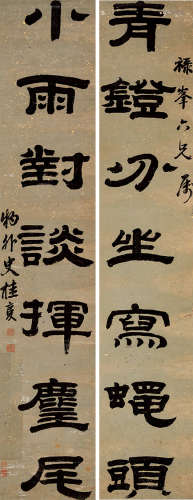 祿峯六兄屬
青鐙分坐寫蠅頭
小雨對談揮麈尾
外史桂馥